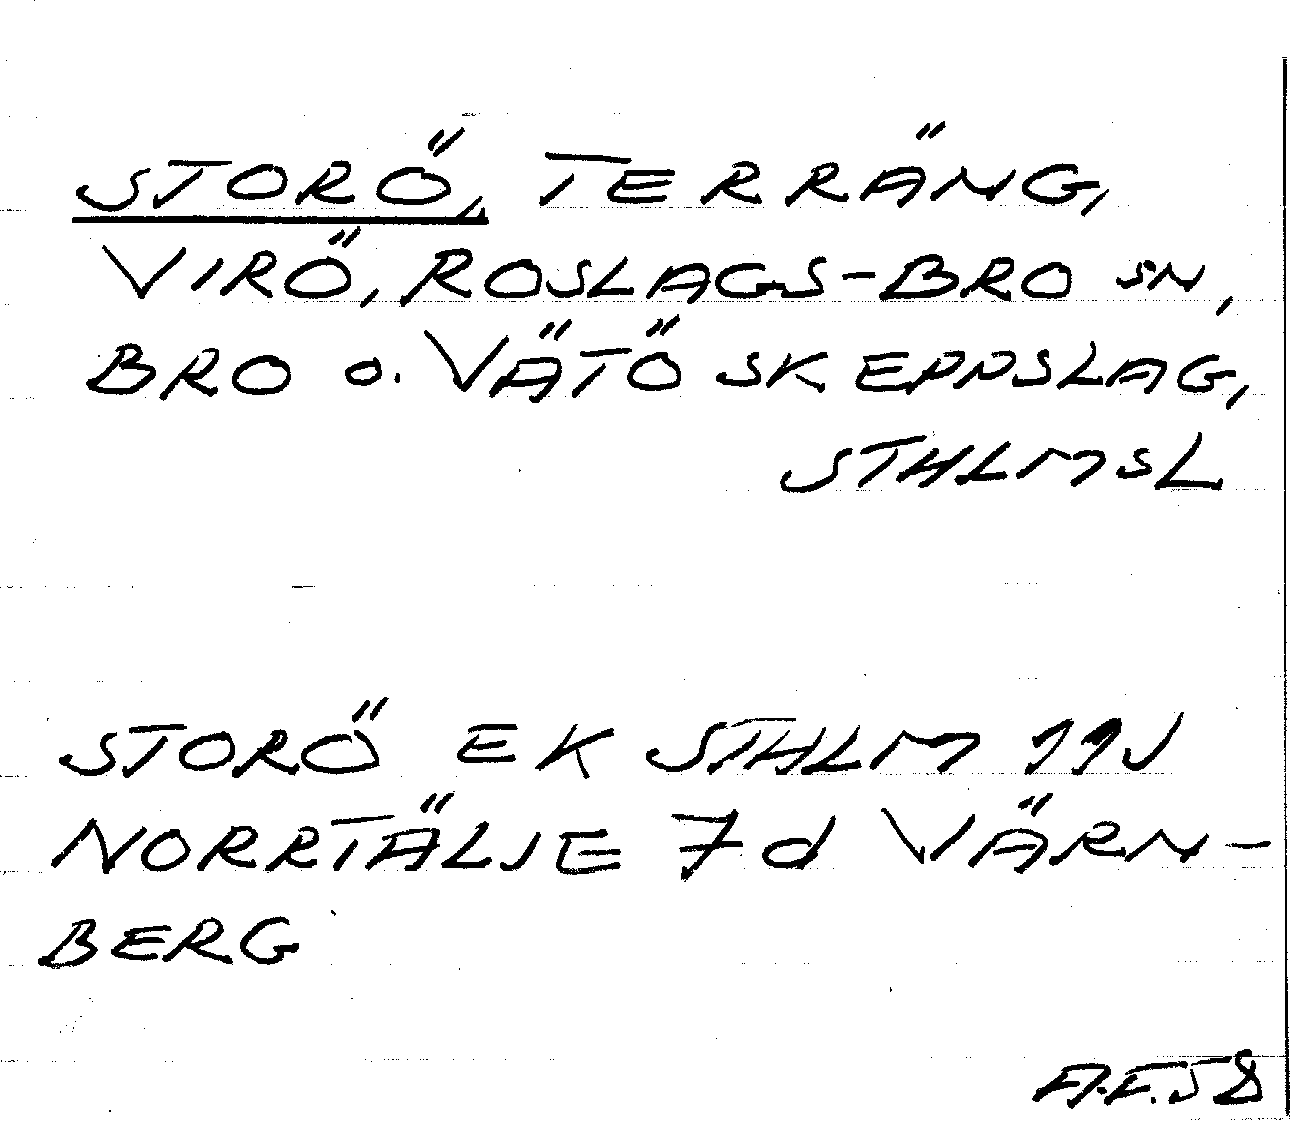 STORÖ, TERRÄNG,
VIRÖ, ROSLAGS-BRO SN,
BRO o. VÄTÖ SKEPPSLAG,
STHLMSL
STORÖ EK STHLM 11J
NORRTÄLJE 7d VÄRN-
BERG
A.F.58